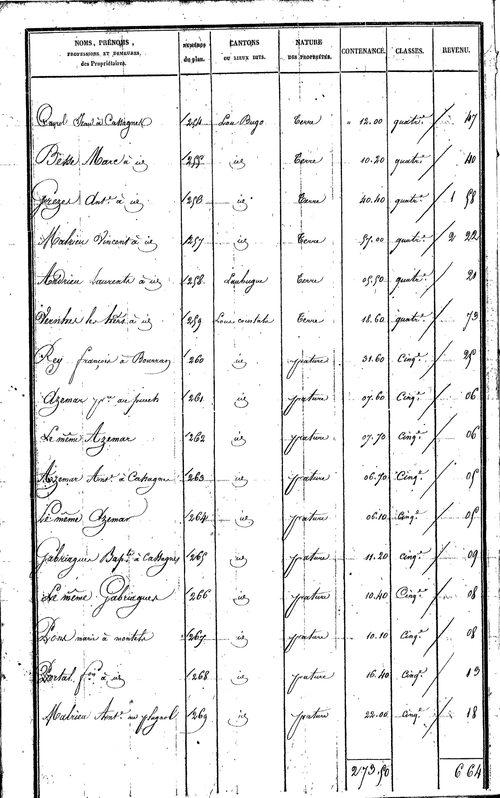 NOMS, PRÉNOMS, PROFESSIONS ET DEMEURES, des Propriétaires. NUMÉROS du plan. CANTONS OU LIEUX DITS. NATURE DES PROPRIÉTÉS. CONTENANCE. CLASSES. REVENU.
à Cassagnes 1254 Lou Bugo Terre 12.00 quatr.e 47
Besse Marc à id 1255 id Terre 10.20 quatr.e 40
Grezes Ant.e à id 1256 id Terre 40.40 quatr.e 1 58
Malrieu Vincent à id 1257 id Terre 57.00 quatr.e 2 22
Andrieu Laurent à id 1258 Terre 05.50 quatr.e 21
Vernhes les hérs à id 1259 Terre 18.60 quatr.e 73
Rey françois à Bourran 1260 id pature 31.60 Cinq.e 25
Azemar 1261 id pature 07.60 Cinq.e 06
Le même Azemar 1262 id pature 07.70 Cinq.e 06
Azemar Ant.e à Cassagnes 1263 id pature 06.70 Cinq.e 05
Le même Azemar 1264 id pature 06.10 Cinq.e 05
Gabriagues Bap.te à Cassagnes 1265 id pature 11.20 cinq.e 09
Le même Gabriagues 1266 id pature 10.40 Cinq.e 08
Pons marie à 1267 id pature 10.10 Cinq.e 08
Portal à id 1268 id pature 16.40 Cinq.e 13
Malrieu Ant.e 1269 id pature 22.00 cinq.e 18
273.50 6 64